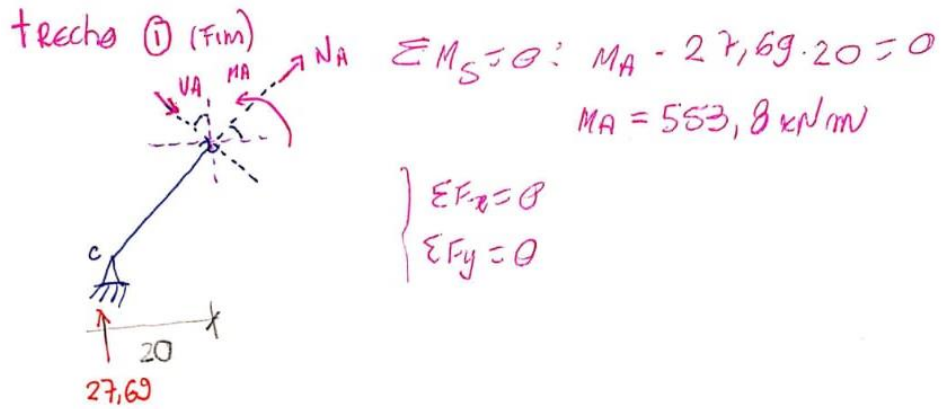 tRecho ① (Fim)
NA
VA
MA
ΣM_S=0: MA - 27,69·20=0
MA = 553,8 kNm
ΣFx=0
ΣFy=0
C
20
27,69